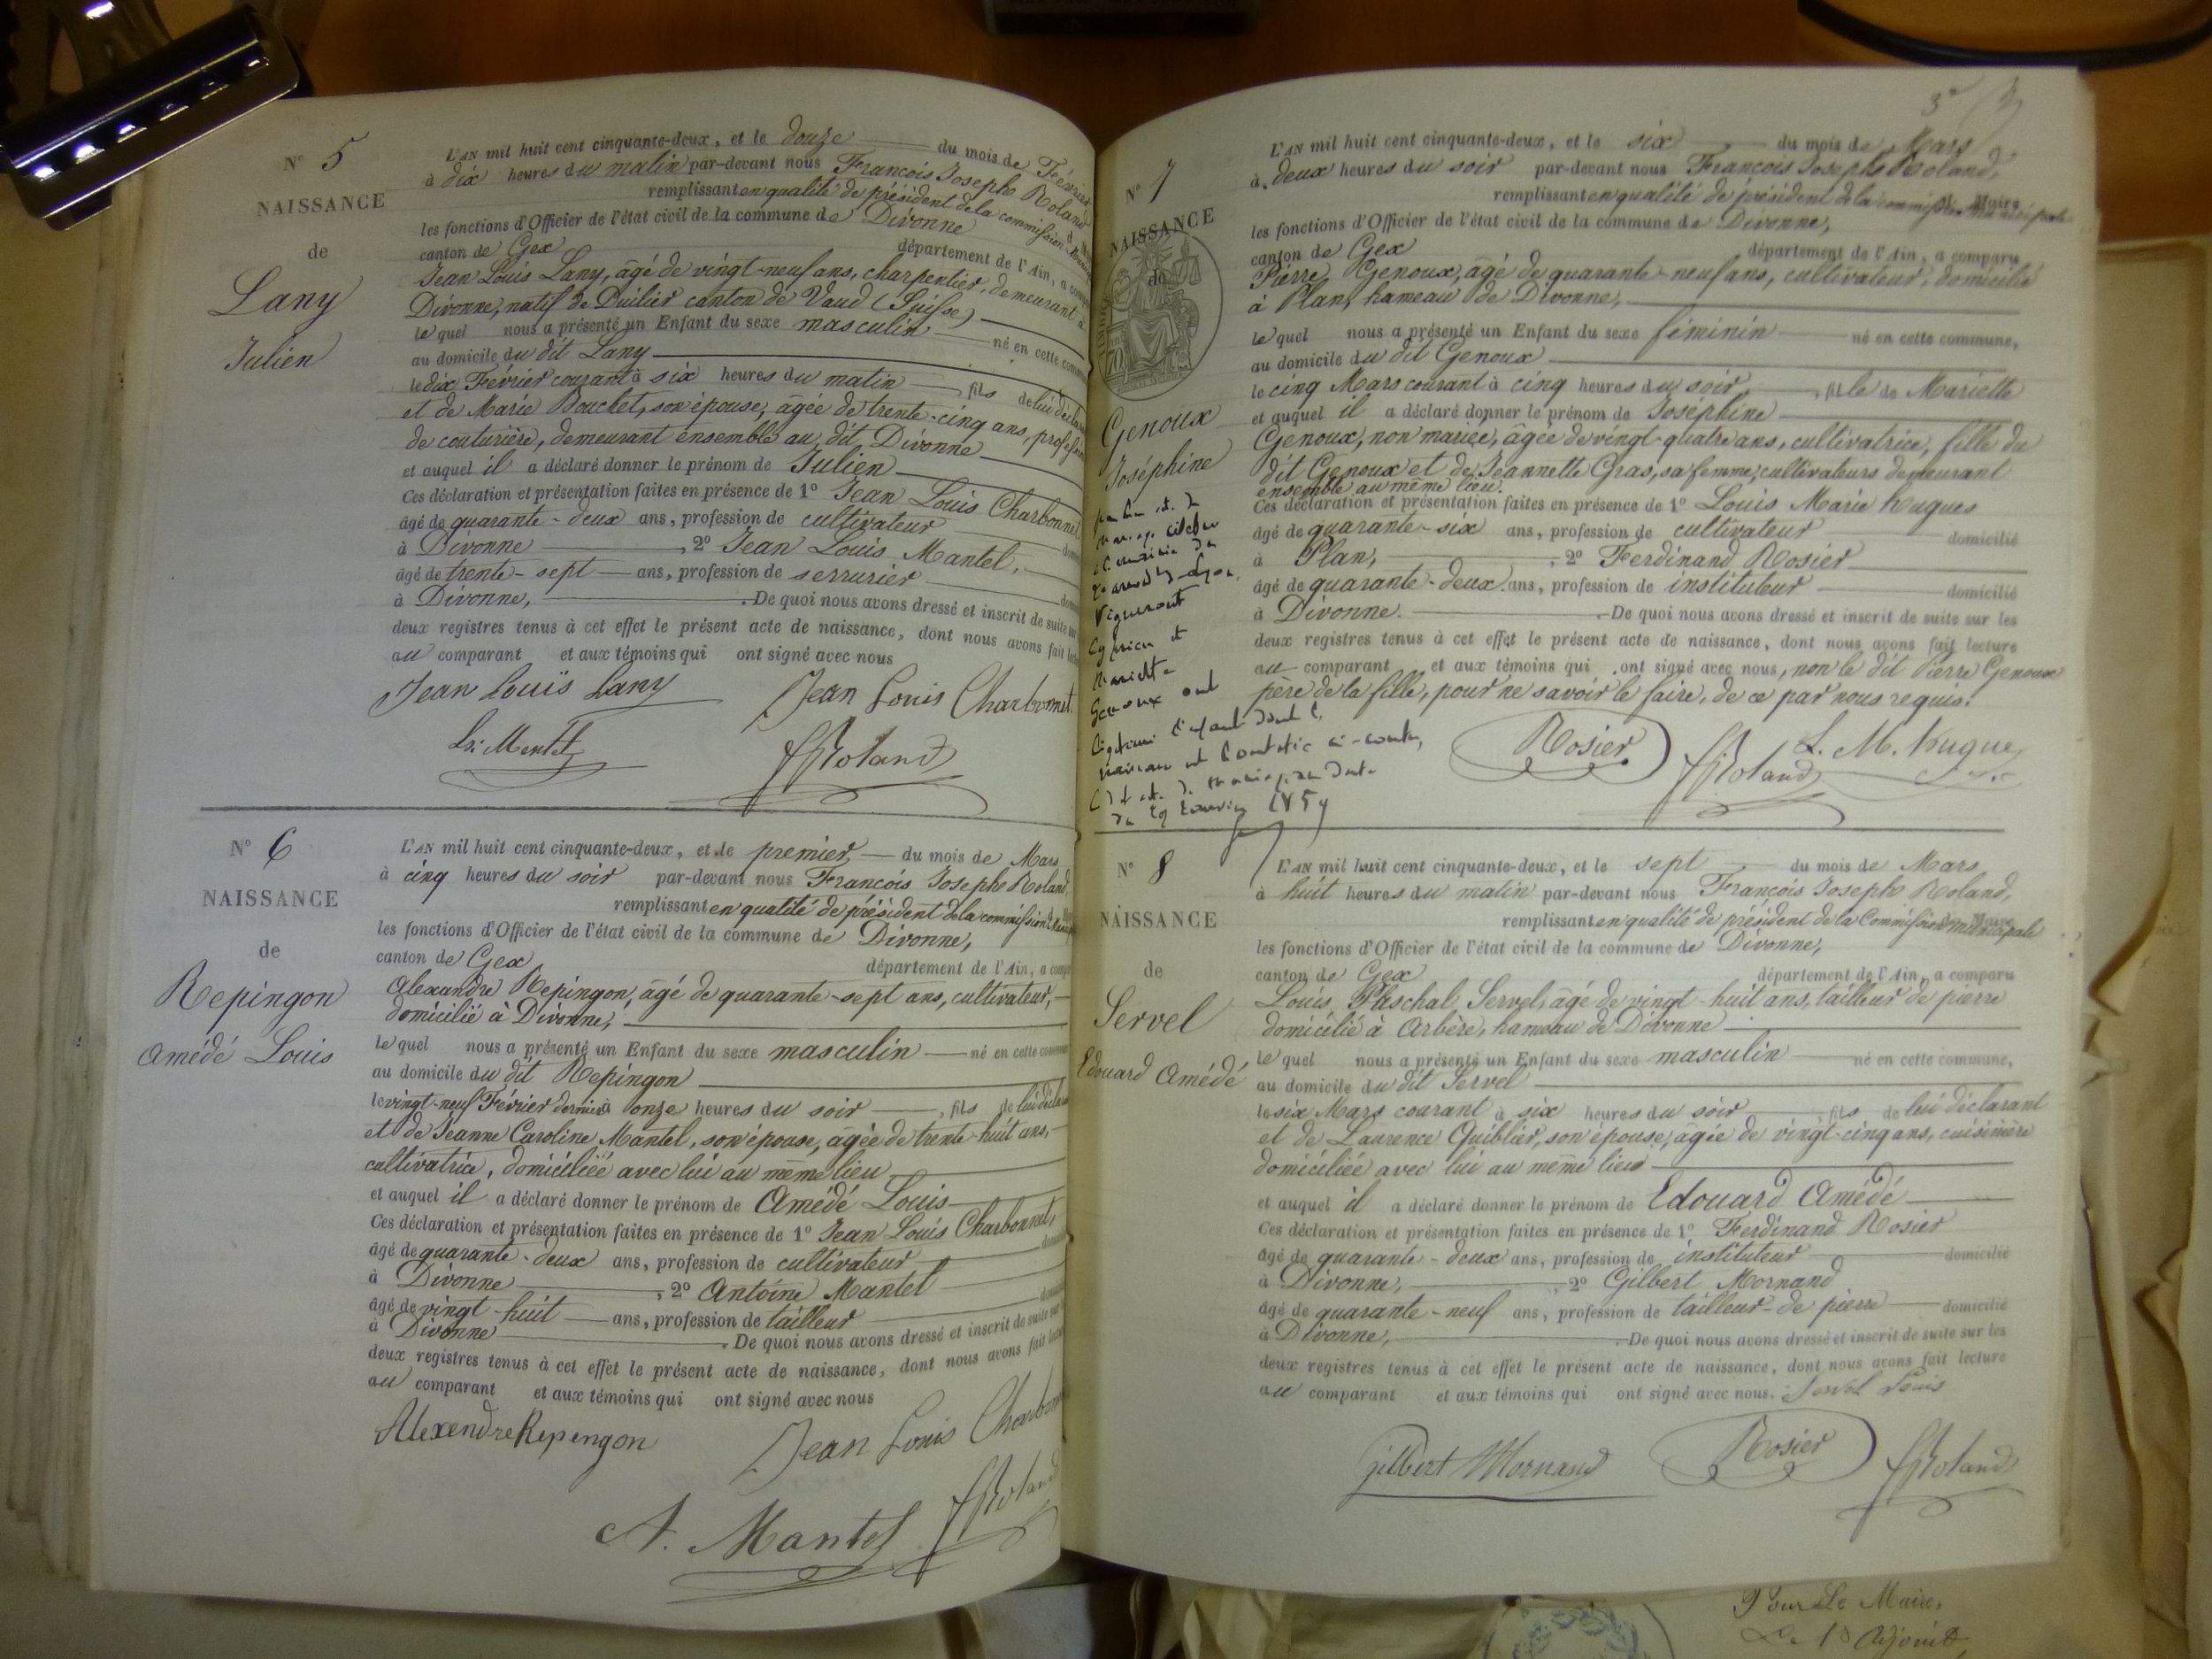 N° 5
NAISSANCE
de
Lany
Julien
L'AN mil huit cent cinquante-deux, et le douze du mois de Février
à dix heures du matin par-devant nous François Joseph Roland
remplissant en qualité de président de la commission
les fonctions d'Officier de l'état civil de la commune de Divonne
canton de Gex département de l'Ain, a comparu
Jean Louis Lany, âgé de vingt-neuf ans, charpentier, demeurant à
Divonne, natif de Duilier canton de Vaud (Suisse)
lequel nous a présenté un Enfant du sexe masculin né en cette commune
au domicile du dit Lany
le dix Février courant à six heures du matin fils de lui déclarant
et de Marie Bouchet, son épouse, âgée de trente-cinq ans, profession
de couturière, demeurant ensemble au dit Divonne
et auquel il a déclaré donner le prénom de Julien
Ces déclaration et présentation faites en présence de 1° Jean Louis Charbonnet
âgé de quarante-deux ans, profession de cultivateur
à Divonne, 2° Jean Louis Mantel,
âgé de trente-sept ans, profession de serrurier
à Divonne, De quoi nous avons dressé et inscrit de suite sur
deux registres tenus à cet effet le présent acte de naissance, dont nous avons fait lecture
au comparant et aux témoins qui ont signé avec nous
Jean Louis Lany Jean Louis Charbonnet
Ls: Mentel fJRoland
N° 6
NAISSANCE
de
Repingon
Amédé Louis
L'AN mil huit cent cinquante-deux, et le premier du mois de Mars
à cinq heures du soir par-devant nous François Joseph Roland,
remplissant en qualité de président de la commission
les fonctions d'Officier de l'état civil de la commune de Divonne,
canton de Gex département de l'Ain, a comparu
Alexandre Repingon, âgé de quarante-sept ans, cultivateur,
domicilié à Divonne,
lequel nous a présenté un Enfant du sexe masculin né en cette commune
au domicile du dit Repingon
le vingt-neuf Février dernier à onze heures du soir, fils de lui déclarant
et de Jeanne Caroline Mantel, son épouse, âgée de trente-huit ans,
cultivatrice, domiciliée avec lui au même lieu
et auquel il a déclaré donner le prénom de Amédé Louis
Ces déclaration et présentation faites en présence de 1° Jean Louis Charbonnet,
âgé de quarante-deux ans, profession de cultivateur
à Divonne, 2° Antoine Mantel
âgé de vingt-huit ans, profession de tailleur
à Divonne. De quoi nous avons dressé et inscrit de suite sur
deux registres tenus à cet effet le présent acte de naissance, dont nous avons fait lecture
au comparant et aux témoins qui ont signé avec nous
Alexendre Repengon Jean Louis Charbonnet
A. Mantel fJRoland
3°
N° 7
NAISSANCE
de
Genoux
Joséphine
Vigneront
Mariette
Genoux ont
légitimé l'enfant dont la
1854
L'AN mil huit cent cinquante-deux, et le six du mois de Mars
à deux heures du soir par-devant nous François Joseph Roland,
remplissant en qualité de président de la commission municipale
les fonctions d'Officier de l'état civil de la commune de Divonne,
canton de Gex département de l'Ain, a comparu
Pierre Genoux, âgé de quarante-neuf ans, cultivateur, domicilié
à Plan, hameau de Divonne,
lequel nous a présenté un Enfant du sexe féminin né en cette commune,
au domicile du dit Genoux
le cinq Mars courant à cinq heures du soir, fille de Mariette
et auquel il a déclaré donner le prénom de Joséphine
Genoux, non mariée, âgée de vingt-quatre ans, cultivatrice, fille du
dit Genoux et de Jeannette Gras, sa femme, cultivateurs demeurant
ensemble au même lieu.
Ces déclaration et présentation faites en présence de 1° Louis Marie hugues
âgé de quarante-six ans, profession de cultivateur domicilié
à Plan, 2° Ferdinand Rosier
âgé de quarante-deux ans, profession de instituteur domicilié
à Divonne. De quoi nous avons dressé et inscrit de suite sur les
deux registres tenus à cet effet le présent acte de naissance, dont nous avons fait lecture
au comparant et aux témoins qui ont signé avec nous, non le dit Pierre Genoux
père de la fille, pour ne savoir le faire, de ce par nous requis.
Rosier fJRoland L. M. hugue
N° 8
NAISSANCE
de
Servel
Edouard Amédé
L'AN mil huit cent cinquante-deux, et le sept du mois de Mars
à huit heures du matin par-devant nous François Joseph Roland,
remplissant en qualité de président de la Commission municipale
les fonctions d'Officier de l'état civil de la commune de Divonne,
canton de Gex département de l'Ain, a comparu
Louis Paschal Servel, âgé de vingt-huit ans, tailleur de pierre
domicilié à Arbère, hameau de Divonne
lequel nous a présenté un Enfant du sexe masculin né en cette commune,
au domicile du dit Servel
le six Mars courant à six heures du soir, fils de lui déclarant
et de Laurence Quiblier, son épouse, âgée de vingt-cinq ans, cuisinière
domiciliée avec lui au même lieu
et auquel il a déclaré donner le prénom de Edouard Amédé
Ces déclaration et présentation faites en présence de 1° Ferdinand Rosier
âgé de quarante-deux ans, profession de instituteur domicilié
à Divonne, 2° Gilbert Mornand
âgé de quarante-neuf ans, profession de tailleur de pierre domicilié
à Divonne, De quoi nous avons dressé et inscrit de suite sur les
deux registres tenus à cet effet le présent acte de naissance, dont nous avons fait lecture
au comparant et aux témoins qui ont signé avec nous. Servel Louis
Gilbert Mornand Rosier fJRoland
Pour Le Maire,
Le 1er Adjoint